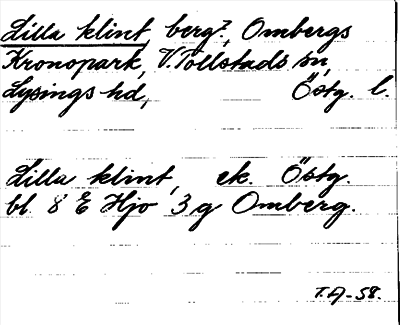 Lilla klint, berg?, Ombergs
Kronopark, V. Tollstads sn,
Lysings hd, Östg. l.
Lilla klint, ek. Östg.
bl. 8 E Hjo 3 g Omberg.
T.A-58.